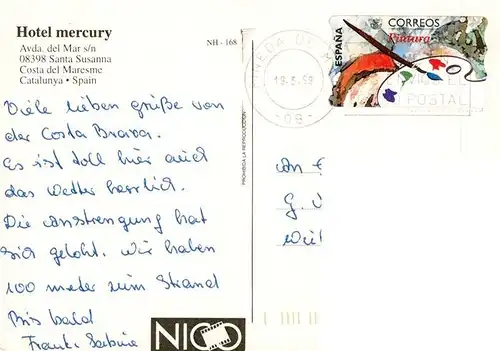 Hotel mercury
Avda. del Mar s/n
08398 Santa Susanna
Costa del Maresme
Catalunya • Spain
NH - 168
Viele lieben grüße von
der Costa Brava.
Es ist toll hier auch
das Wetter herrlich.
Die Anstrengung hat
sich gelohnt. Wir haben
100 meter zum Strand
Bis bald
Frank Sabine
PROHIBIDA LA REPRODUCCION
NICO
CORREOS
Pintura
ESPAÑA
PINEDA DE
POSTAL
-08-
An
G.